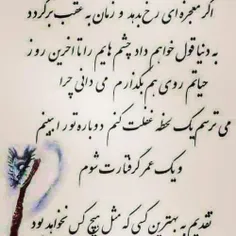 اگر معجزه‌ای رخ بدهد و زمان به عقب برگردد
به دنیا قول خواهم داد چشم هایم را تا آخرین روز
حیاتم روی هم بگذارم می دانی چرا
می ترسم یک لحظه غفلت کنم دوباره تو را ببینم
و یک عمر گرفتارت شوم
تقدیم به بهترین کسی که مثل هیچ کس نخواهد بود